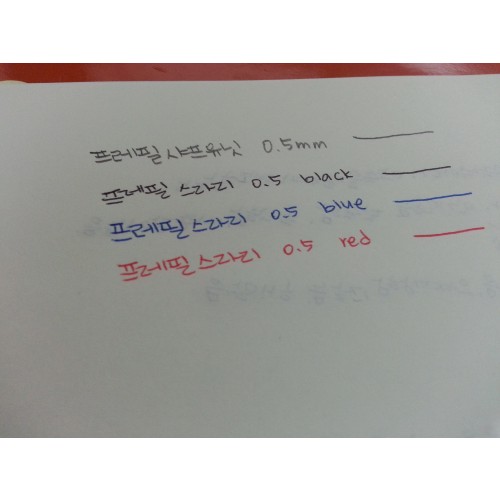 프레필 샤프유닛 0.5mm
프레필 스라리 0.5 black
프레필 스라리 0.5 blue
프레필 스라리 0.5 red